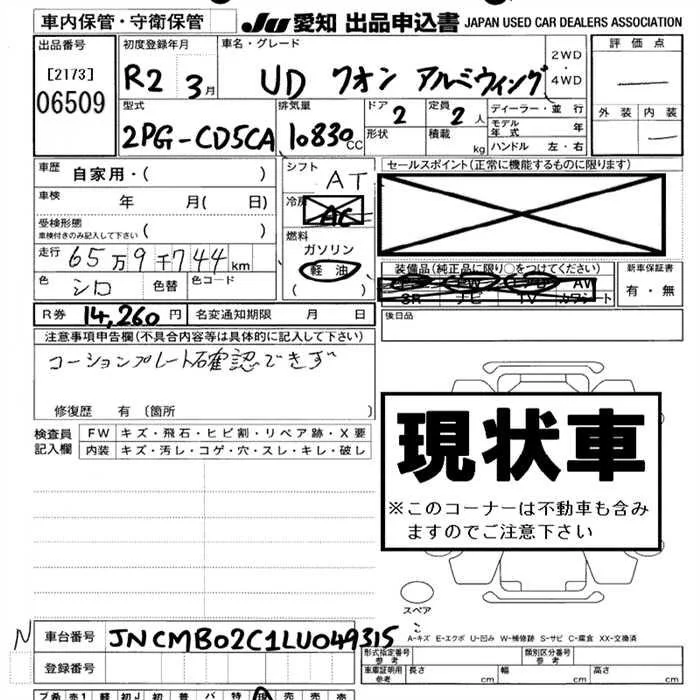 車内保管・守衛保管
JU 愛知 出品申込書 JAPAN USED CAR DEALERS ASSOCIATION
出品番号
[2173]
06509
初度登録年月
R2 3月
車名・グレード
UD クオン アルミウィング
2WD
・
4WD
評価点
外装 内装
型式
2PG-CD5CA
排気量
10830cc
ドア 2
形状
定員 2人
積載 kg
ディーラー・並行
モデル年式 年
ハンドル 左・右
車歴 自家用・( )
車検 年 月( 日)
受検形態
車検付きのみ記入して下さい ( )
走行 65万9千744km
色 シロ 色替 色コード
シフト AT
冷房 AC
燃料
ガソリン
軽油
セールスポイント(正常に機能するものに限ります)
装備品(純正品に限り○をつけてください)
PS PW
SR ナビ TV カワシート
AW
新車保証書
有・無
R券 14,260円 名変通知期限 月 日
後日品
注意事項申告欄(不具合内容等は具体的に記入して下さい)
コーションプレート石確認できず
修復歴 有 〔箇所 〕
検査員
記入欄
FW キズ・飛石・ヒビ割・リペア跡・X要
内装 キズ・汚レ・コゲ・穴・スレ・キレ・破レ
現状車
※このコーナーは不動車も含み
ますのでご注意下さい
スペア
A-キズ E-エクボ U-凹み W-補修跡 S-サビ C-腐食 XX-交換済
N
車台番号 JNCMB02C1LU049315
登録番号
型式指定番号
参考
類別区分番号
参考
車両証明書
参考
長さ 幅 高さ